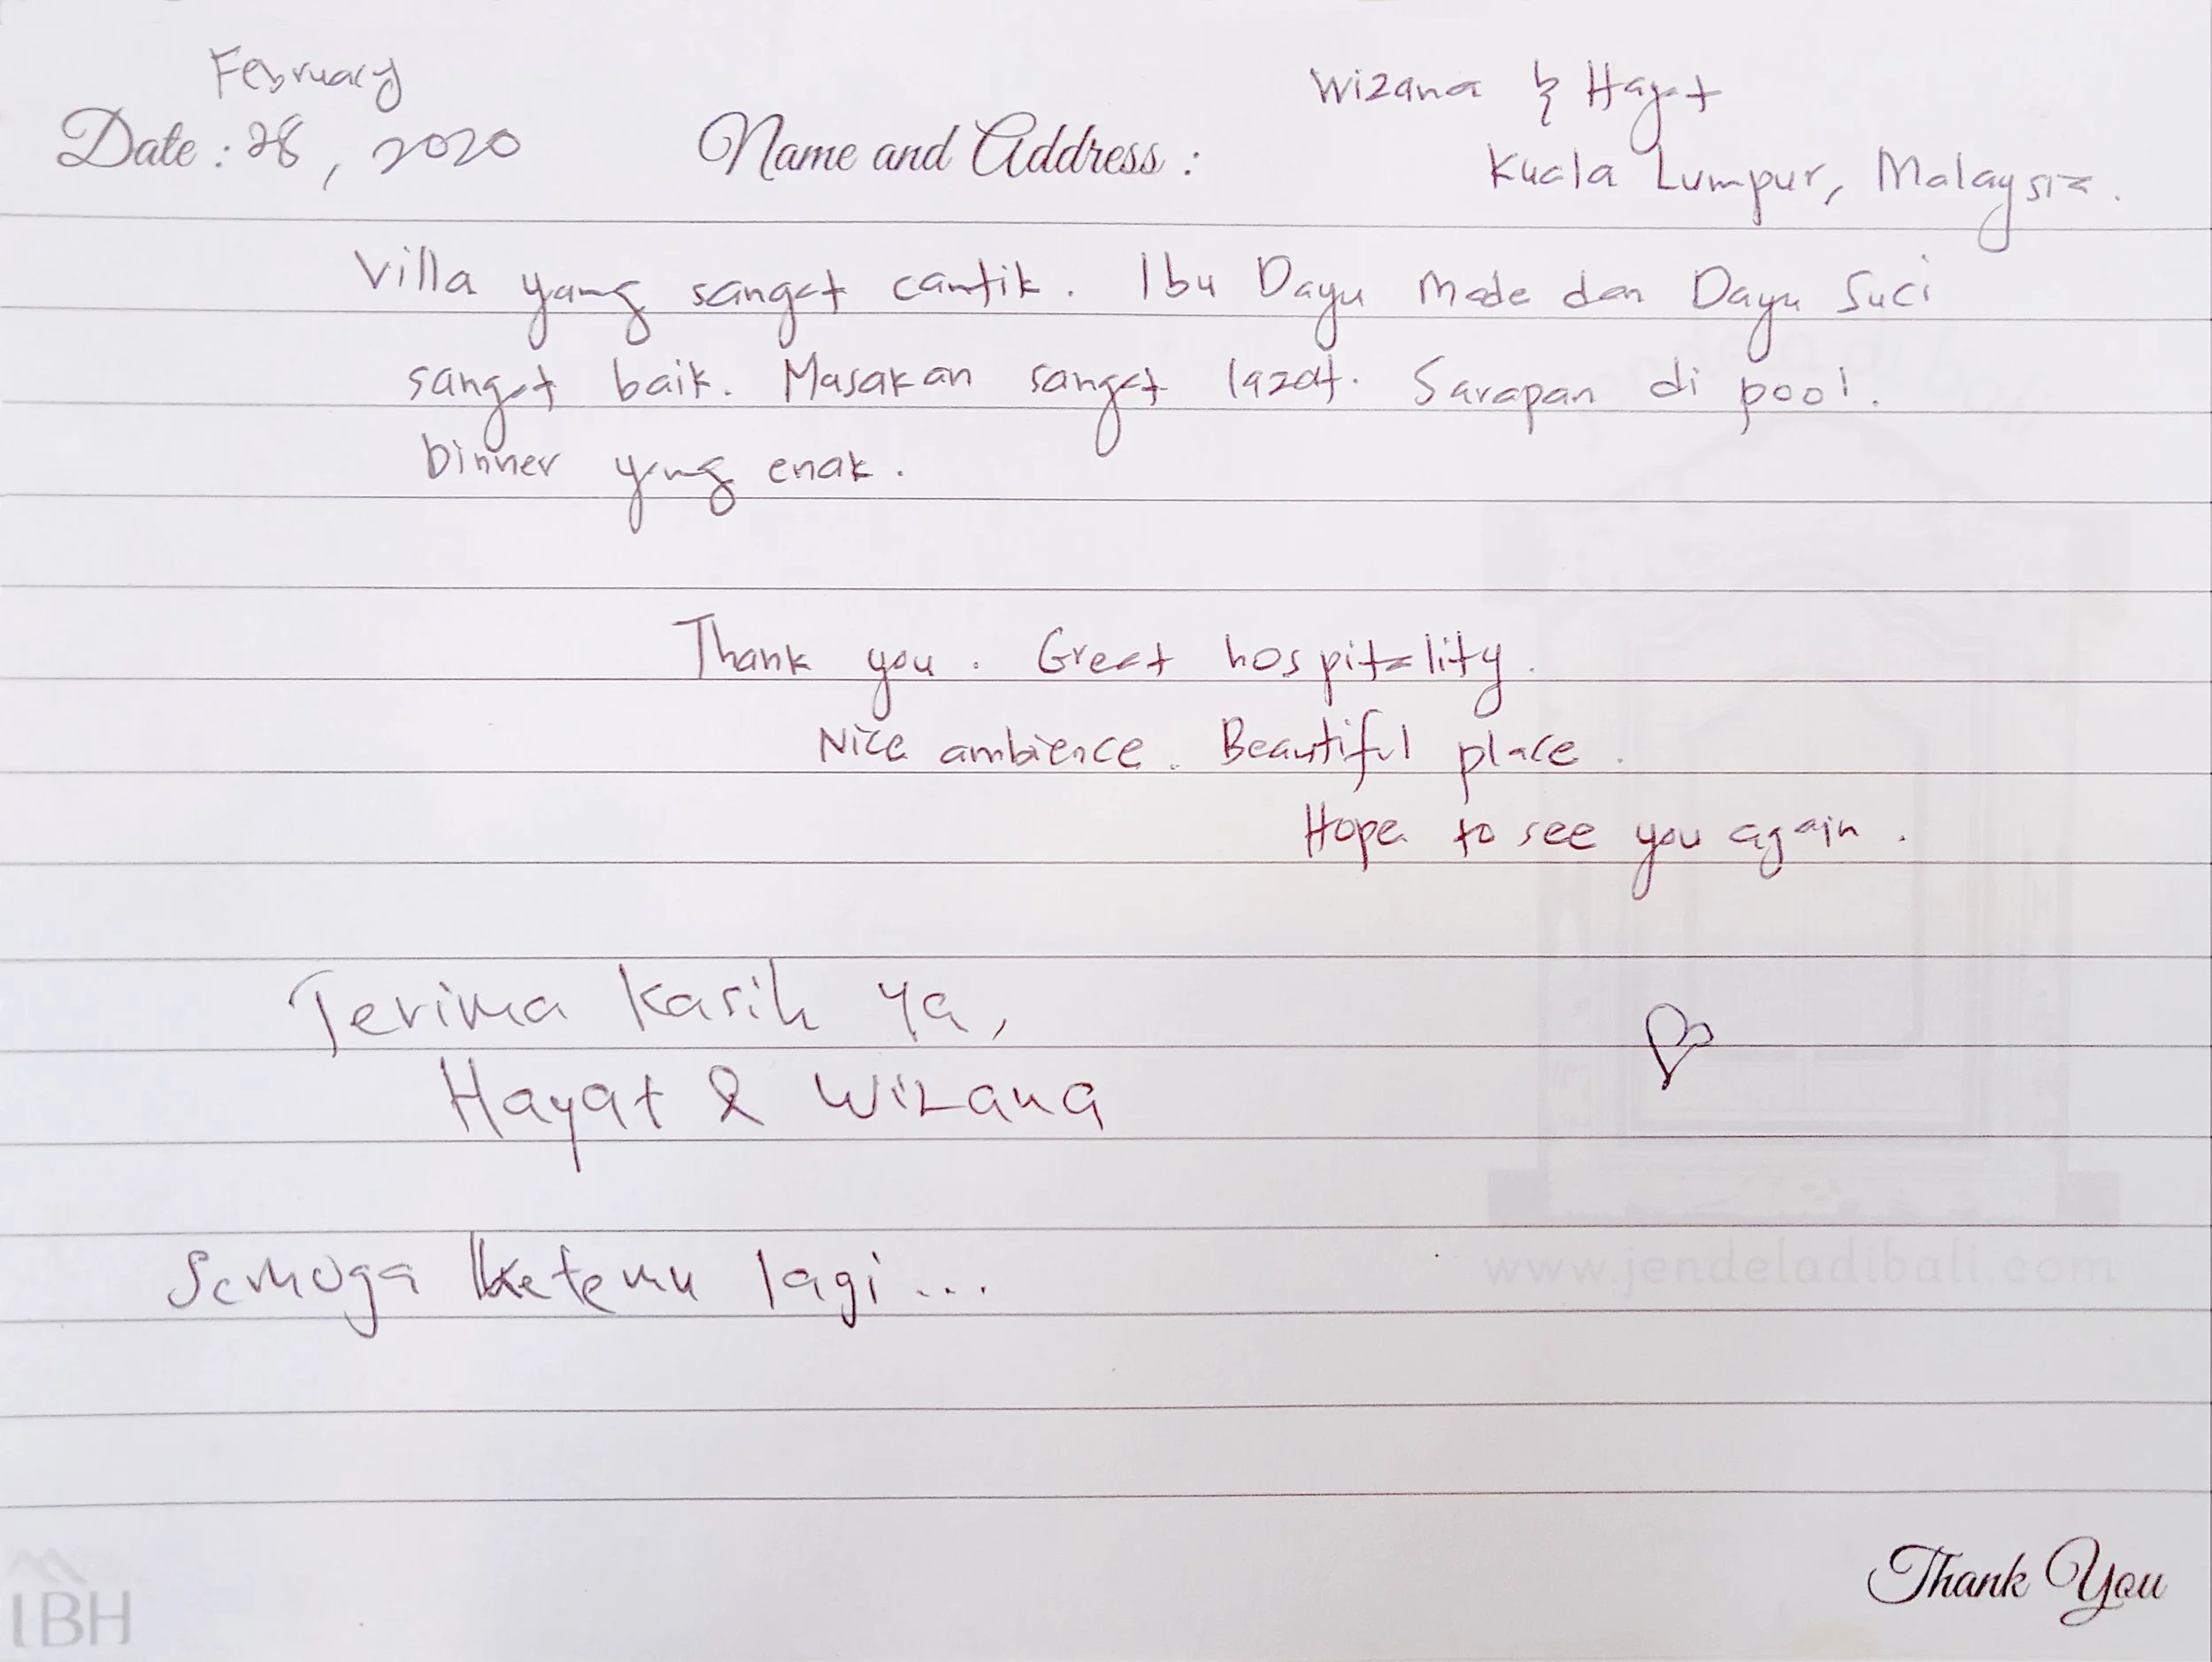 February
Date : 28, 2020
Name and Address :
Wizana & Hayat
Kuala Lumpur, Malaysia.
Villa yang sangat cantik. Ibu Dayu Made dan Dayu Suci
sangat baik. Masakan sangat lazat. Sarapan di pool.
Dinner yang enak.
Thank you. Great hospitality.
Nice ambience. Beautiful place.
Hope to see you again.
Terima Kasih Ya,
Hayat & Wizana
Semoga ketemu lagi...
www.jendeladibali.com
IBH
Thank You